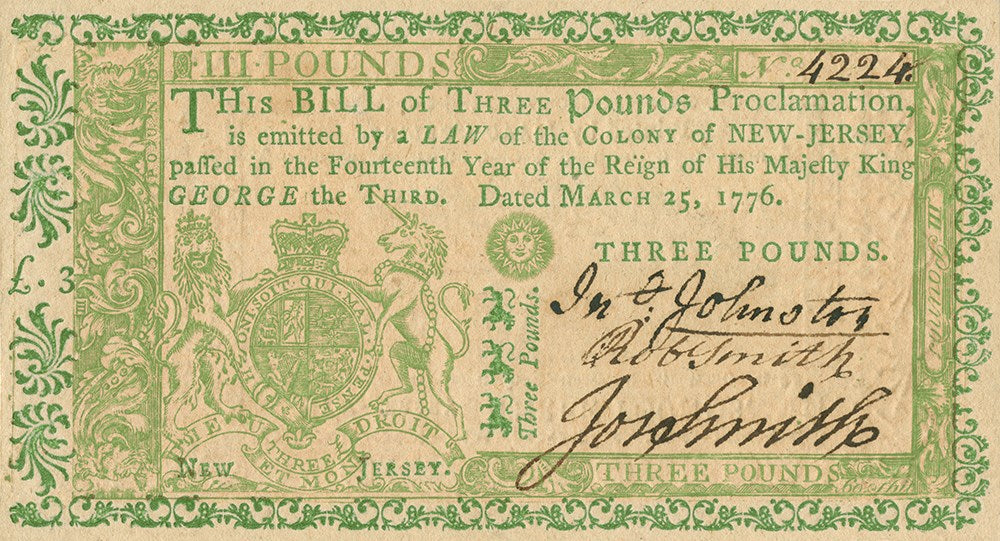 III·POUNDS
No 4224.
THIS BILL of THREE Pounds Proclamation,
is emitted by a LAW of the COLONY of NEW-JERSEY,
paſſed in the Fourteenth Year of the Reign of His Majeſty King
GEORGE the THIRD. Dated MARCH 25, 1776.
THREE POUNDS.
£. 3
HONI·SOIT·QUI·MAL·Y·PENSE
Three Pounds.
Jno Johnston
Rob Smith
Jos Smith
DIEU
DROIT
THREE £
ET MON
NEW JERSEY.
THREE POUNDS
III Pounds